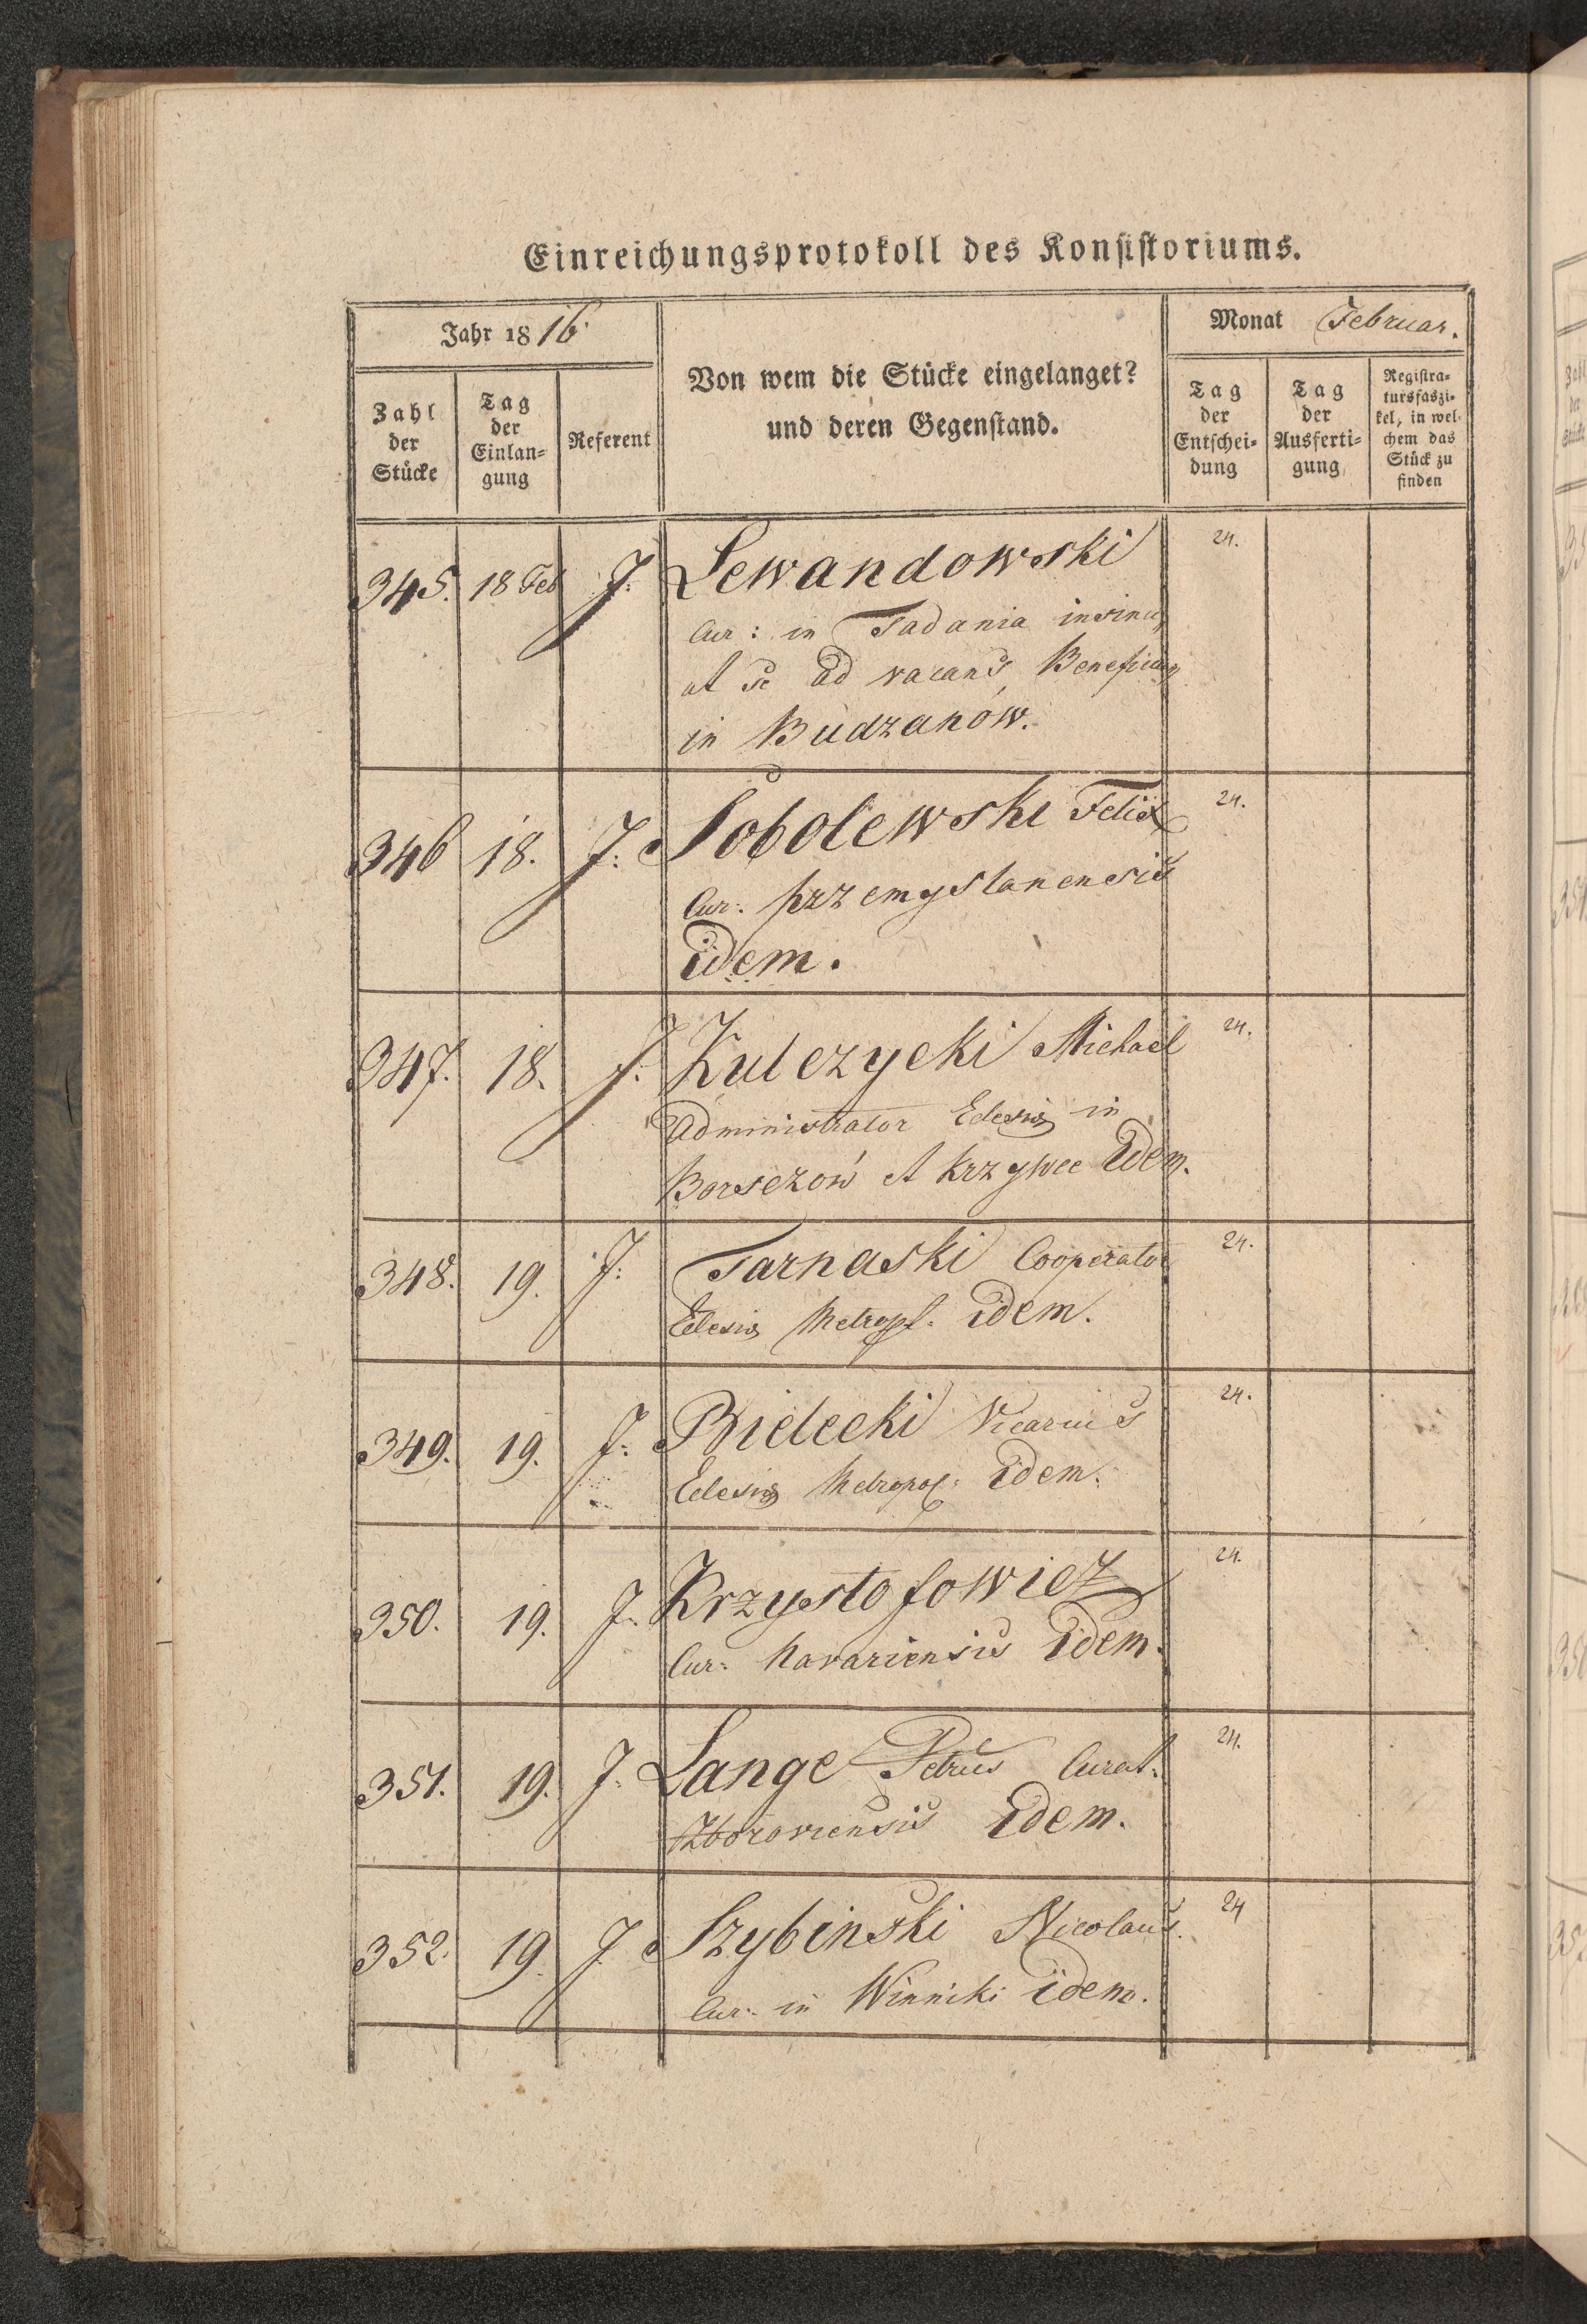 Einreichungsprotokoll des Konsistoriums.
Jahr 1816.
Monat Februar.
Zahl der Stücke
Tag der Einlan=gung
Referent
Von wem die Stücke eingelanget?
und deren Gegenstand.
Tag der Entschei=dung
Tag der Ausferti=gung
Registra=tursfaszi=kel, in wel=chem das Stück zu finden
345. 18 Feb J: Lewandowski 24.
Cur: in Tadania insinu
at se ad vacans Beneficium
in Budzanów.
346 18. J: Sobolewski Felix 24.
Cur: Przemyslanensis
idem.
347. 18. J: Kulczycki Michael 24.
Administrator Eclesiae in
Borsczow et Krzywcc idem.
348. 19. J: Tarnaski Cooperator 24.
Eclesiae Metropl. idem.
349. 19. J: Bielecki Vicarius 24.
Eclesiae Metropol: idem.
350. 19. J: Krzysztofowicz 24.
Cur: Navariensis idem.
351. 19. J: Lange Petrus Curat. 24.
Zboroviensis idem.
352. 19. J. Szybinski Nicolaus. 24
Cur: in Winniki idem.